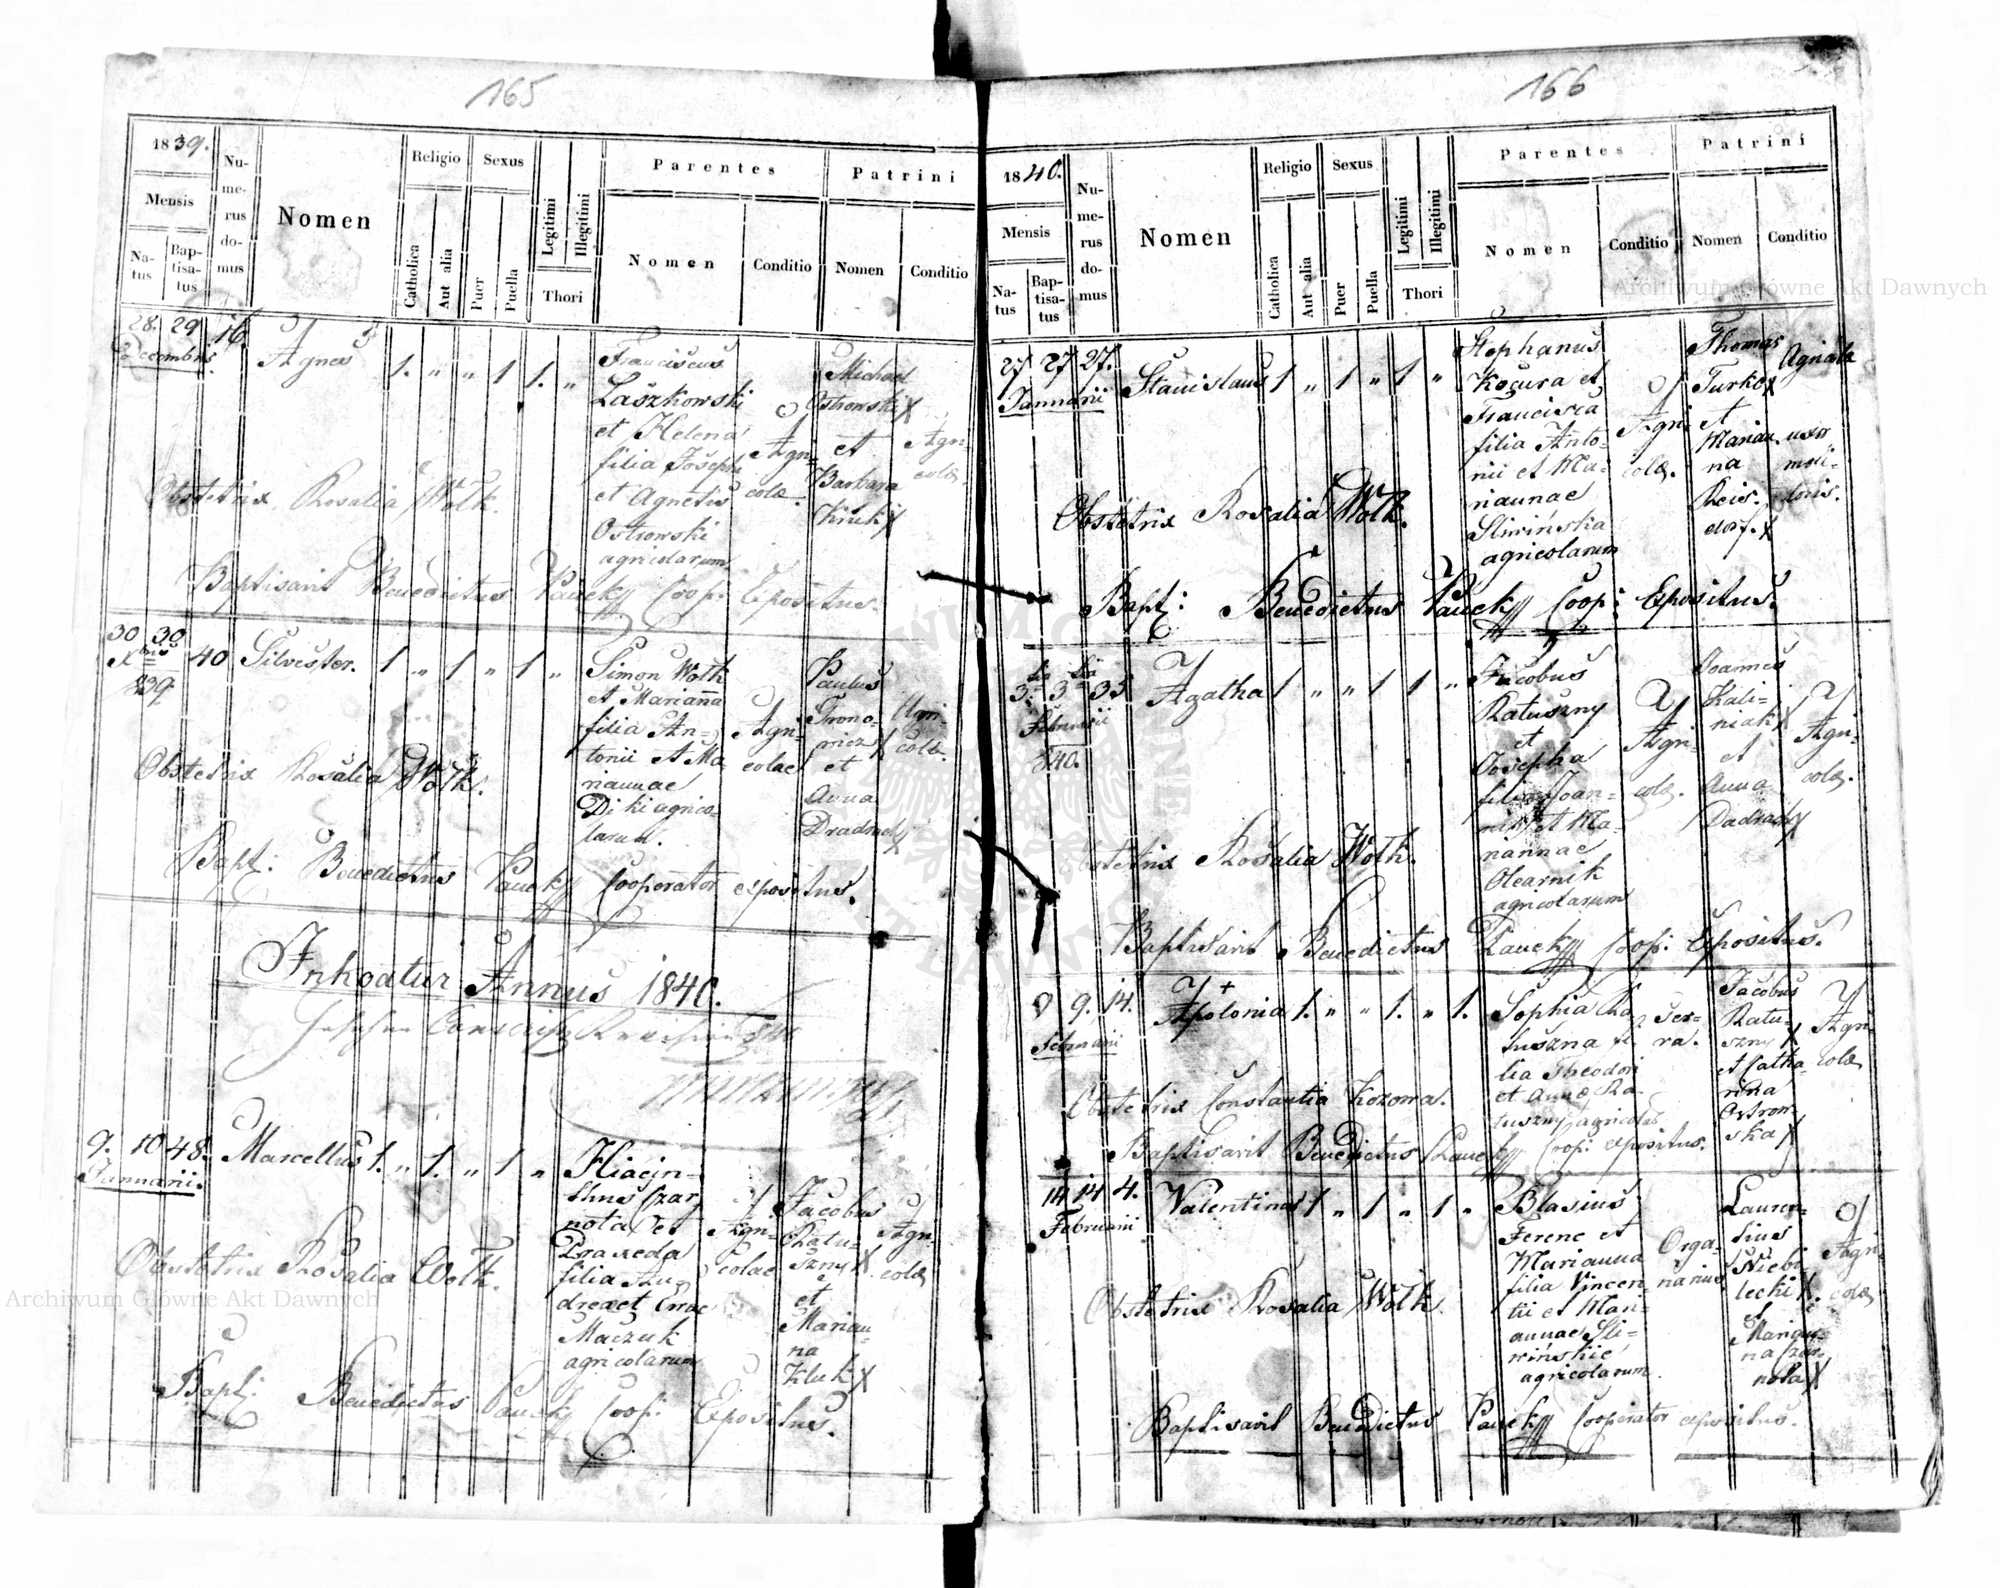 165
1839.
Mensis
Na-
tus
Bap-
tisa-
tus
Nu-
me-
rus
do-
mus
Nomen
Religio
Catholica
Aut alia
Sexus
Puer
Puella
Legitimi
Illegitimi
Thori
Parentes
Nomen
Conditio
Patrini
Nomen
Conditio
28. 29 16
Decembris
Agnes
1. " " 1 1. "
Franciscus
Laszkowski
et Helena
filia Josephi
et Agnetis
Ostrowski
agricolarum
Agri-
colae
Michael
Ostrowski X
et
Barbara
Kruk X
Agri-
colae
Obstetrix Rosalia Wołk.
Baptisavit Benedictus Pauck Coop: Expositus.
30 30 40
Xbris
839
Silvester.
1 " 1 " 1 "
Simon Wołk
et Marianna
filia An-
tonii et Ma
riannae
agrico-
larum.
Agri-
colae
Paulus
X
et
Anna
X
Agri-
colae.
Obstetrix Rosalia Wołk.
Bapt: Benedictus Pauck Cooperator expositus.
Inhoatur Annus 1840.
9. 10 48.
Januarii.
Marcellus
1. " 1. " 1 "
Hiacin-
thus Czar
nota et
Praxeda
filia An-
dreae et Evae
Maczuk
agricolarum
Agri-
colae
Jacobus
Ratu-
szny X
et
Marian-
na
Kluk X
Agri-
colae
Obstetrix Rosalia Wołk.
Bapt: Benedictus Pauck Coop: Expositus.
166
1840.
Mensis
Na-
tus
Bap-
tisa-
tus
Nu-
me-
rus
do-
mus
Nomen
Religio
Catholica
Aut alia
Sexus
Puer
Puella
Legitimi
Illegitimi
Thori
Parentes
Nomen
Conditio
Patrini
Nomen
Conditio
27 27 27.
Januarii
Stanislaus
1 " 1 " 1 "
Stephanus
Kocura et
Francisca
filia Anto-
nii et Ma-
riannae
Sliwińska
agricolarum
Agri-
colae.
Thomas
Turko X
et
Marian-
na
Reis-
dorf. X
Agricola
uxor
moli-
toris.
Obstetrix Rosalia Wołk.
Bapt: Benedictus Pauck Coop: Expositus.
3tia 3tia 35
Februarii
840.
Agatha
1 " " 1 1 "
Jacobus
Ratuszny
et
Josepha
filia Joan-
nis et Ma-
riannae
Olearnik
agricolarum
Agri-
colae.
Joannes
Kali-
niak X
et
Anna
X
Agri-
colae.
Obstetrix Rosalia Wołk.
Baptisavit Benedictus Pauck Coop: Expositus.
9. 14.
Februarii
+
Apolonia
1. " " 1. " 1.
Sophia Ra
tuszna fi
lia Theodori
et Annae Ra-
tuszny agricolae
Ser-
va.
Jacobus
Ratu-
szny X
et Catha-
rina
Ostrow-
ska X
Agri
colae
Obstetrix Constantia Kozowa.
Baptisavit Benedictus Pauck Coop: expositus.
14 14 4.
Februarii
Valentinus
1 " 1 " 1 "
Blasius
Ferenc et
Marianna
filia Vincen
tii et Mari-
annae Sli-
wińskie
agricolarum.
Orga-
narius
Lauren-
tius
Niebi-
lecki X.
et
Marian-
na Czar-
nota X
Agri-
colae
Obstetrix Rosalia Wołk.
Baptisavit Benedictus Pauck Cooperator expositus.
Archiwum Główne Akt Dawnych
Archiwum Główne Akt Dawnych